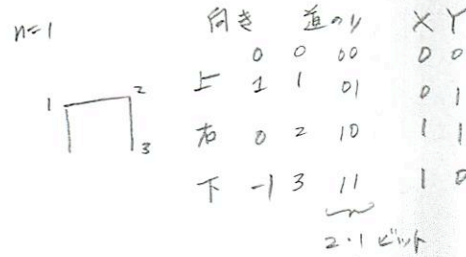 n=1 向き 道のり X Y
0 0 00 0 0
上 1 1 01 0 1
右 0 2 10 1 1
下 -1 3 11 1 0
2・1 ビット
1 2
3